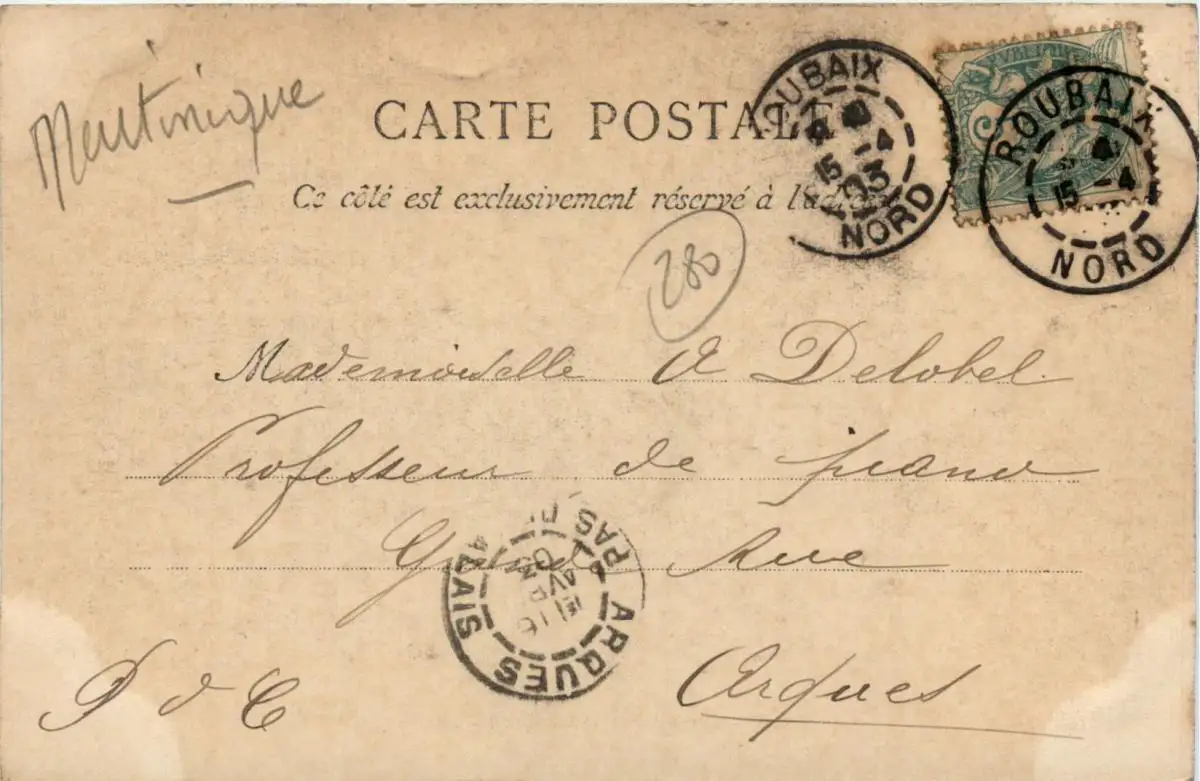 Martinique
CARTE POSTALE
Ce côté est exclusivement réservé à l'adresse
ROUBAIX
15 -4
03
NORD
ROUBAIX
15 -4
NORD
280
Mademoiselle A Delobel
Professeur de piano
Grande Rue
ARQUES
16
AVR
03
PAS DE CALAIS
Arques
P d C